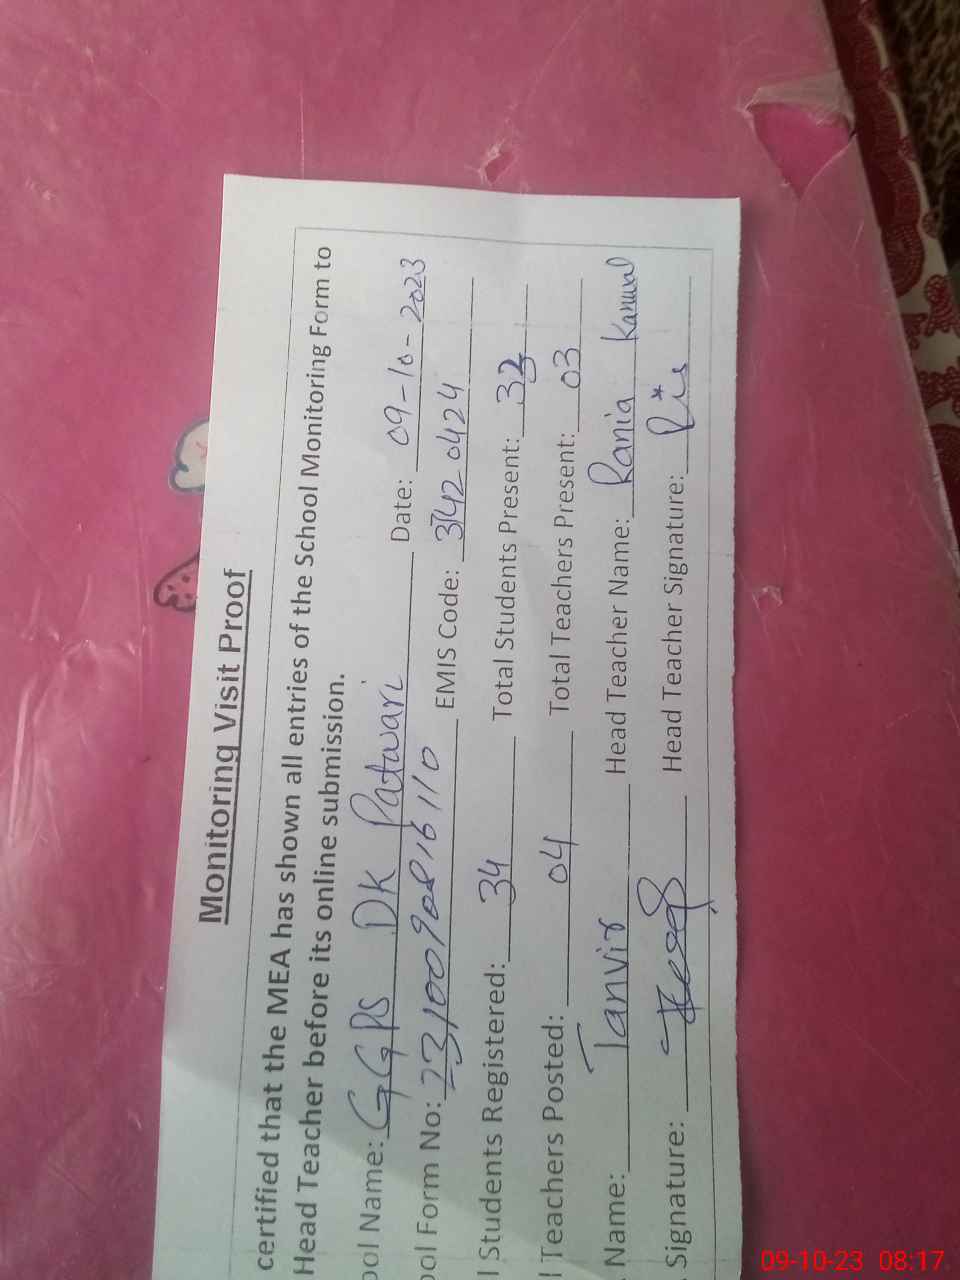 Monitoring Visit Proof
certified that the MEA has shown all entries of the School Monitoring Form to
Head Teacher before its online submission.
ool Name: GGPS DK Patwari Date: 09-10-2023
ool Form No: EMIS Code: 37420424
l Students Registered: 34 Total Students Present:
l Teachers Posted: 04 Total Teachers Present: 03
Name: Tanvir Head Teacher Name: Rania Kanwal
Signature: Head Teacher Signature:
09-10-23 08:17